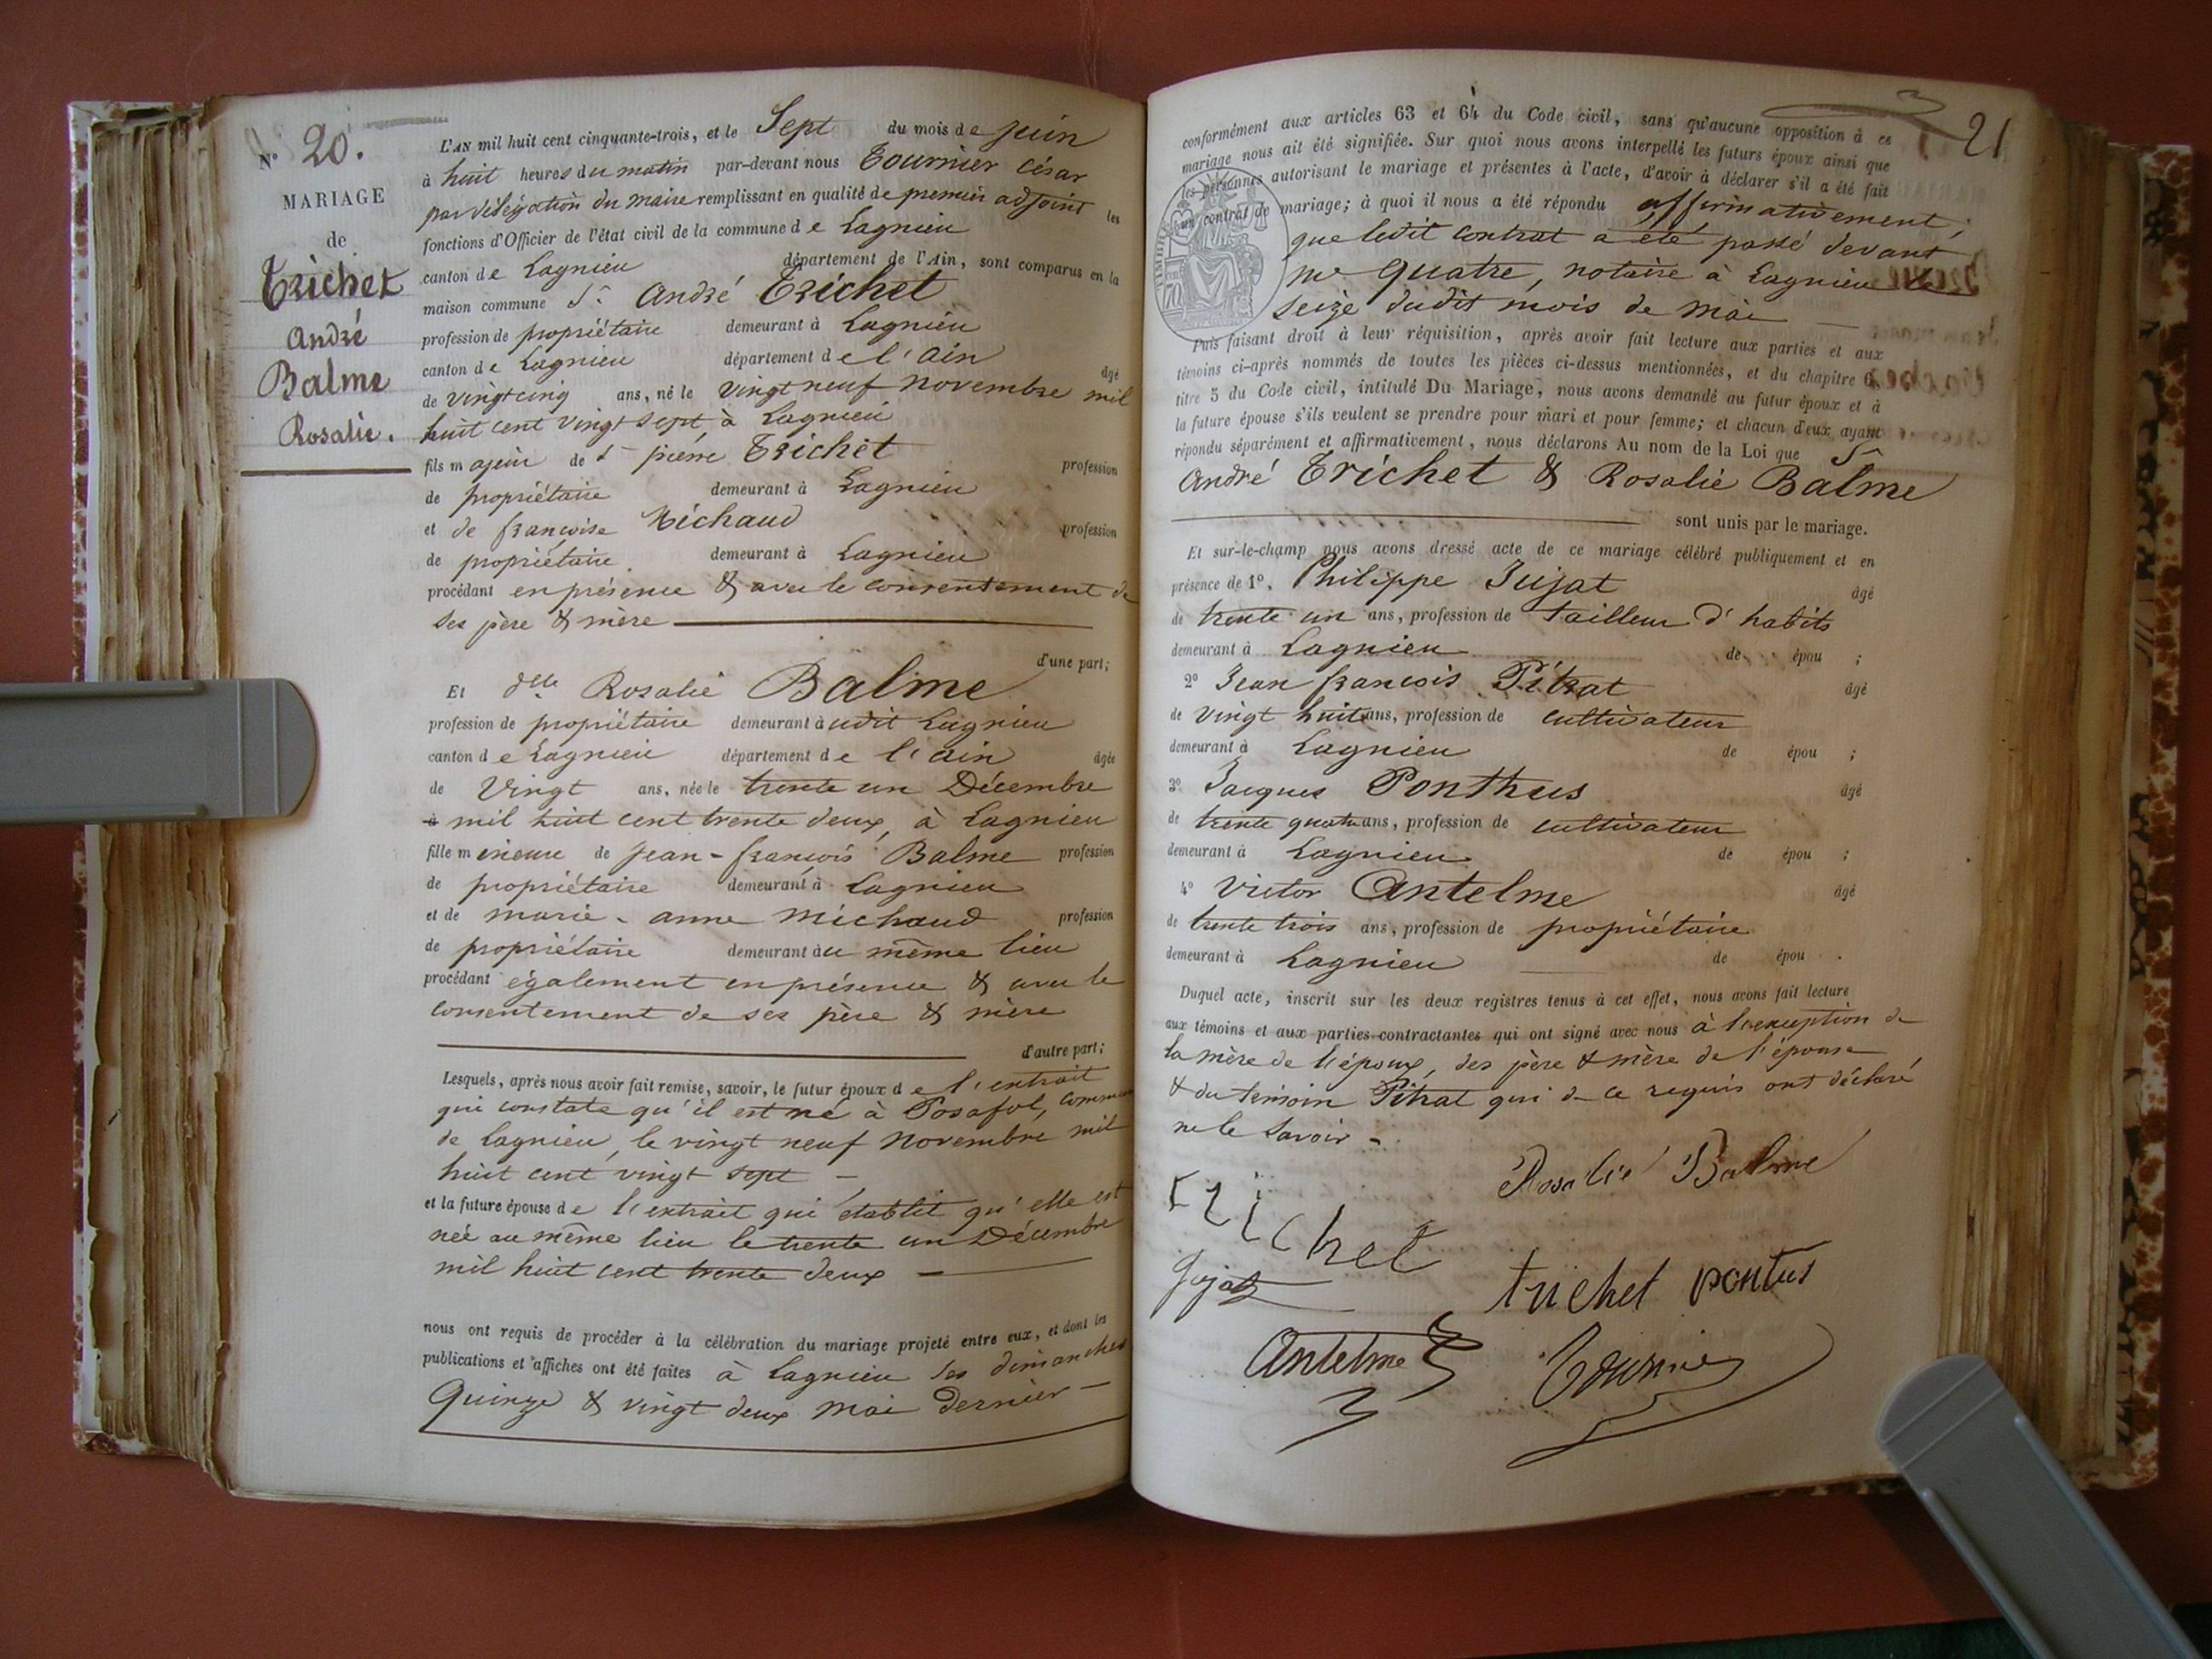 N° 20.
MARIAGE
de
Trichet
André
Balme
Rosalie.
L'AN mil huit cent cinquante-trois, et le Sept du mois de juin
à huit heures du matin par-devant nous Tournier César
par délégation du maire remplissant en qualité de premier adjoint les
fonctions d'Officier de l'état civil de la commune de Lagnieu
canton de Lagnieu département de l'Ain, sont comparus en la
maison commune Sr André Trichet
profession de propriétaire demeurant à Lagnieu
canton de Lagnieu département de l'ain âgé
de vingt cinq ans, né le vingt neuf novembre mil
huit cent vingt sept, à Lagnieu
fils majeur de Sr pierre Trichet profession
de propriétaire demeurant à Lagnieu
et de françoise Michaud profession
de propriétaire demeurant à Lagnieu
procédant en présence & avec le consentement de
ses père & mère
d'une part;
Et dlle Rosalie Balme
profession de propriétaire demeurant audit Lagnieu
canton de Lagnieu département de l'ain âgée
de Vingt ans, née le trente un Décembre
à mil huit cent trente deux, à Lagnieu
fille mineure de jean-françois Balme profession
de propriétaire demeurant à Lagnieu
et de marie-anne michaud profession
de propriétaire demeurant au même lieu
procédant également en présence & avec le
consentement de ses père & mère
d'autre part;
Lesquels, après nous avoir fait remise, savoir, le futur époux de l'extrait
qui constate qu'il est né à Posafol, commune
de Lagnieu, le vingt neuf novembre mil
huit cent vingt sept
et la future épouse de l'extrait qui établit qu'elle est
née au même lieu le trente un Décembre
mil huit cent trente deux
nous ont requis de procéder à la célébration du mariage projeté entre eux, et dont les
publications et affiches ont été faites à Lagnieu les dimanches
Quinze & vingt deux mai dernier
21
conformément aux articles 63 et 64 du Code civil, sans qu'aucune opposition à ce
mariage nous ait été signifiée. Sur quoi nous avons interpellé les futurs époux ainsi que
les personnes autorisant le mariage et présentes à l'acte, d'avoir à déclarer s'il a été fait
un contrat de mariage; à quoi il nous a été répondu affirmativement;
que ledit contrat a été passé devant
me Quatre, notaire à Lagnieu le
seize dudit mois de mai
Puis faisant droit à leur réquisition, après avoir fait lecture aux parties et aux
témoins ci-après nommés de toutes les pièces ci-dessus mentionnées, et du chapitre 6,
titre 5 du Code civil, intitulé Du Mariage, nous avons demandé au futur époux et à
la future épouse s'ils veulent se prendre pour mari et pour femme; et chacun d'eux ayant
répondu séparément et affirmativement, nous déclarons Au nom de la Loi que Sr
André Trichet & Rosalie Balme
sont unis par le mariage.
Et sur-le-champ nous avons dressé acte de ce mariage célébré publiquement et en
présence de 1°. Philippe Jujat âgé
de trente un ans, profession de tailleur d'habits
demeurant à Lagnieu de épou ;
2° Jean françois Pitrat âgé
de vingt huit ans, profession de cultivateur
demeurant à Lagnieu de épou ;
3° Jacques Ponthus âgé
de trente quatre ans, profession de cultivateur
demeurant à Lagnieu de épou ;
4° Victor Antelme âgé
de trente trois ans, profession de propriétaire
demeurant à Lagnieu de épou .
Duquel acte, inscrit sur les deux registres tenus à cet effet, nous avons fait lecture
aux témoins et aux parties contractantes qui ont signé avec nous à l'exception de
la mère de l'époux, des père & mère de l'épouse
& du témoin Pitrat qui de ce requis ont déclaré
ne le savoir.
Rosalie Balme
Trichet
Jujat
trichet pontus
Antelme
Tournier